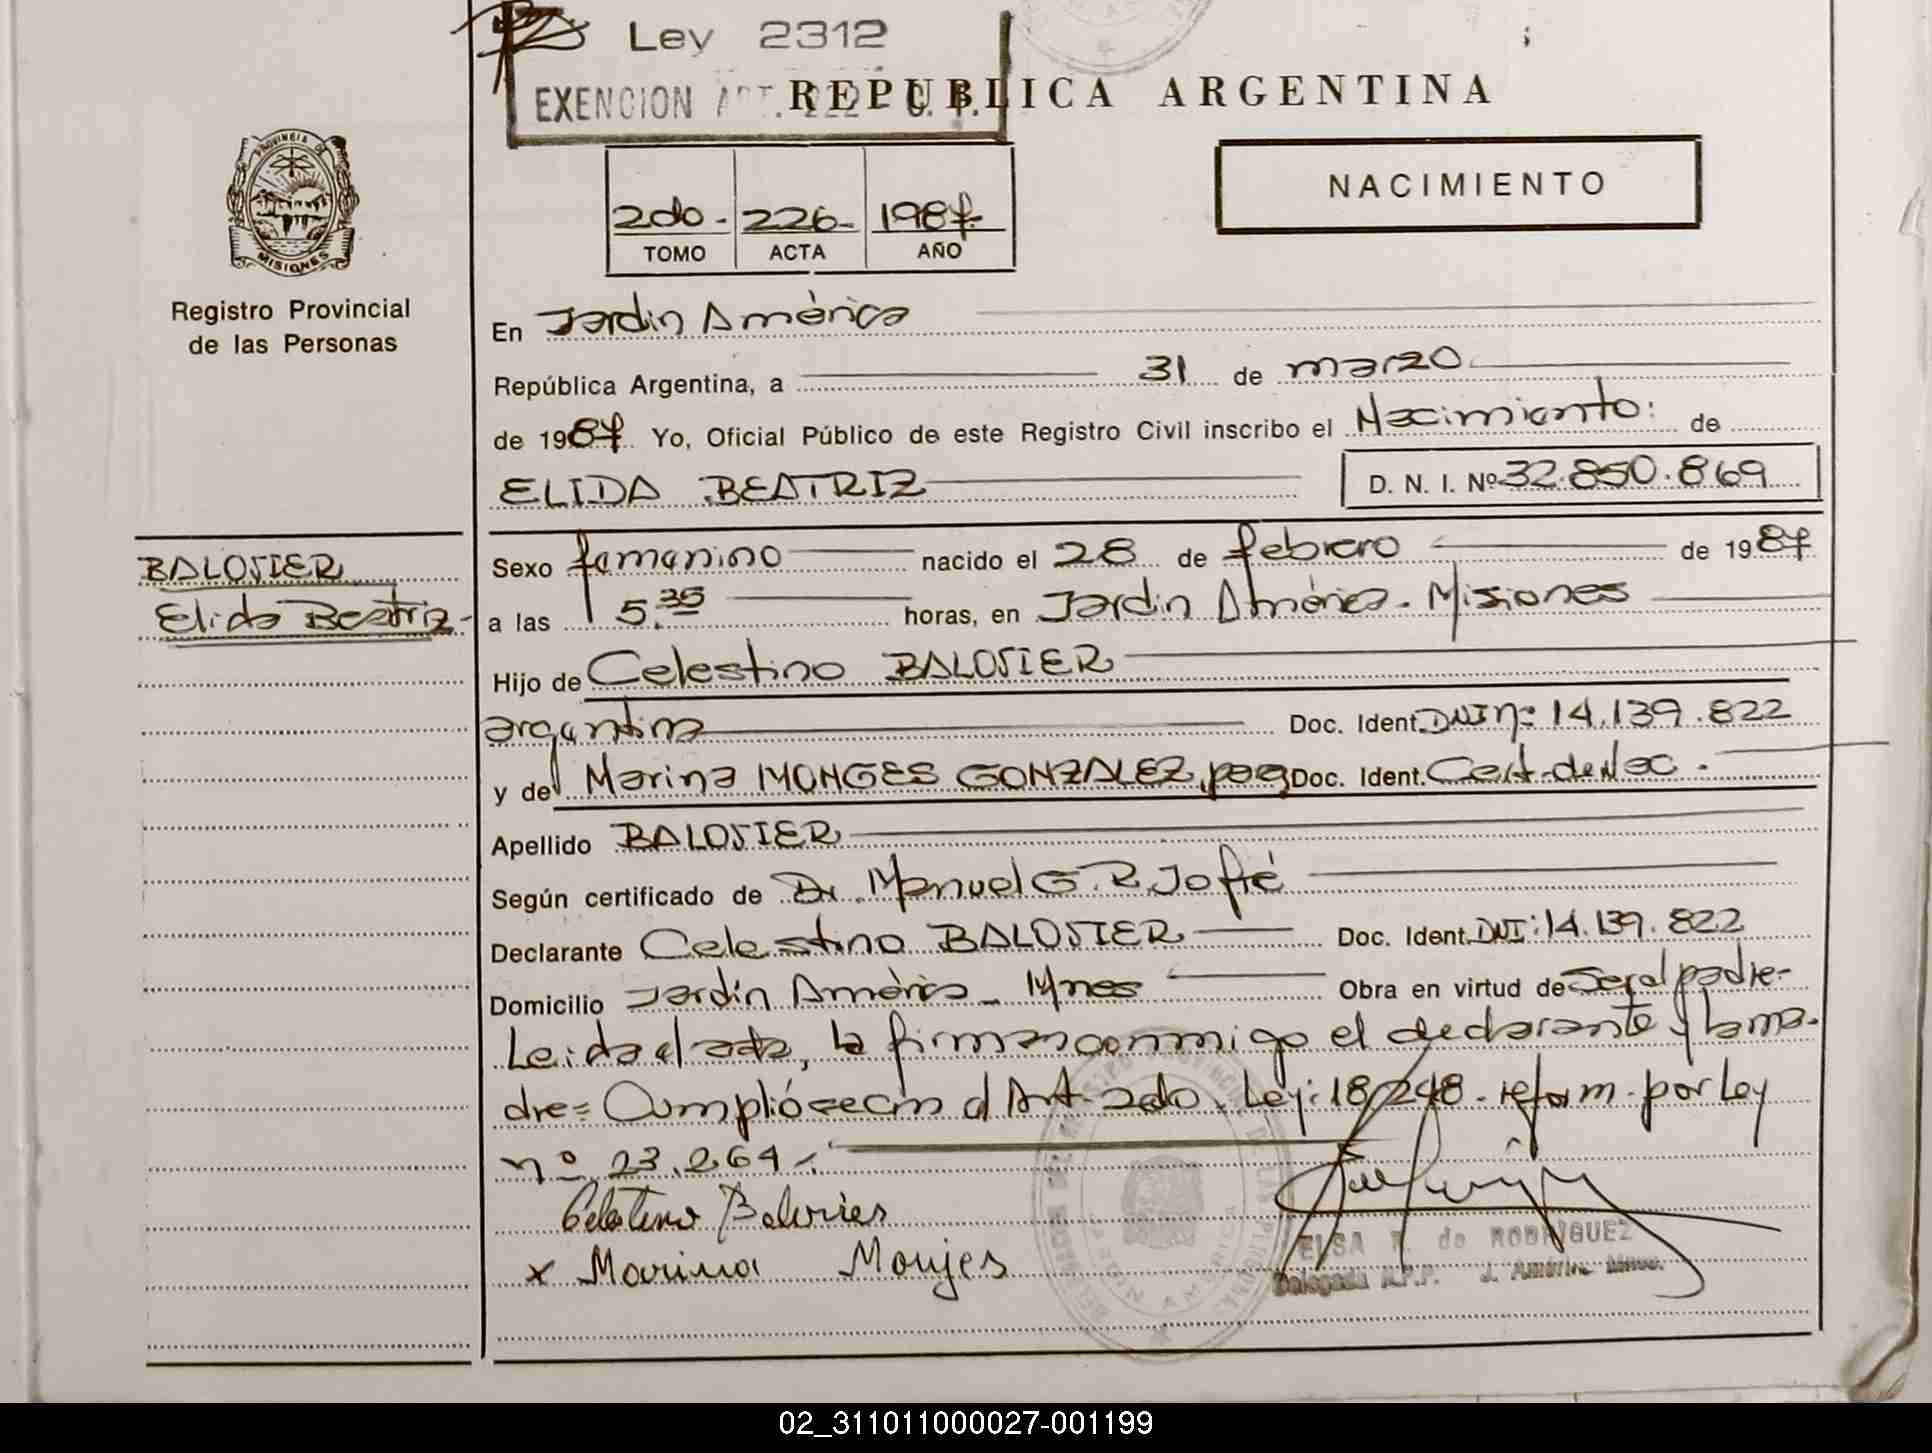 Ley 2312
EXENCION
REPUBLICA ARGENTINA
NACIMIENTO
2do- 226- 1987-
TOMO ACTA AÑO
PROVINCIA DE
MISIONES
Registro Provincial
de las Personas
En Jardín América
República Argentina, a 31 de marzo
de 1987 Yo, Oficial Público de este Registro Civil inscribo el Nacimiento: de
ELIDA BEATRIZ D. N. I. Nº 32.850.869
BALOSIER
Elida Beatriz-
Sexo femenino nacido el 28 de febrero de 1987
a las 5.35 horas, en Jardín América- Misiones
Hijo de Celestino BALOSIER
argentina Doc. Ident. DNI nº 14.139.822
y de Marina MONGES GONZALEZ, parag Doc. Ident. Cert. de Nac.
Apellido BALOSIER
Según certificado de Dr. Manuel G. R. Jofré
Declarante Celestino BALOSIER Doc. Ident. DNI: 14.139.822
Domicilio Jardín América - Mnes Obra en virtud de Ser el padre-
Leída el acta, la firman conmigo el declarante y la ma-
dre= Cumplióse con el Art. 2do. Ley: 18.248. reform. por Ley
nº 23.264.
Celestino Balosier
x Marina Monjes
ELSA de RODRIGUEZ
Delegada R.P.P. J. América Mnes.
JARDIN AMERICA
02_311011000027-001199